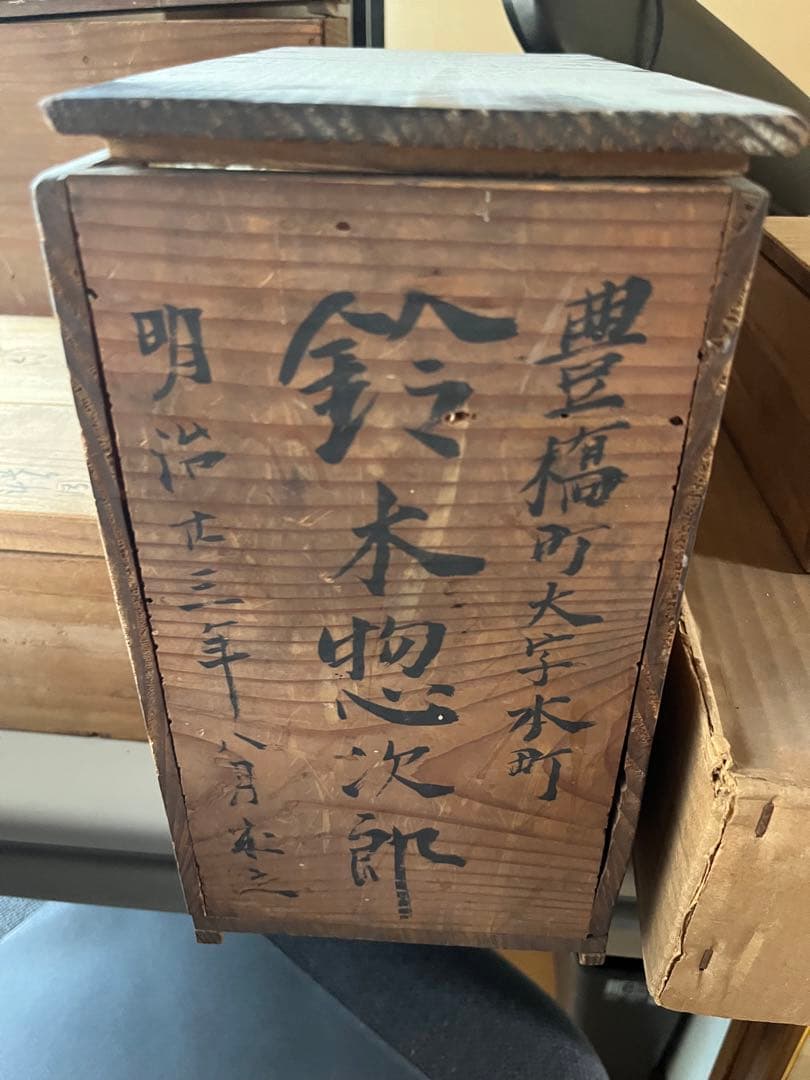 豊橋町大字本町
鈴木惣次郎
明治廿三年八月求之